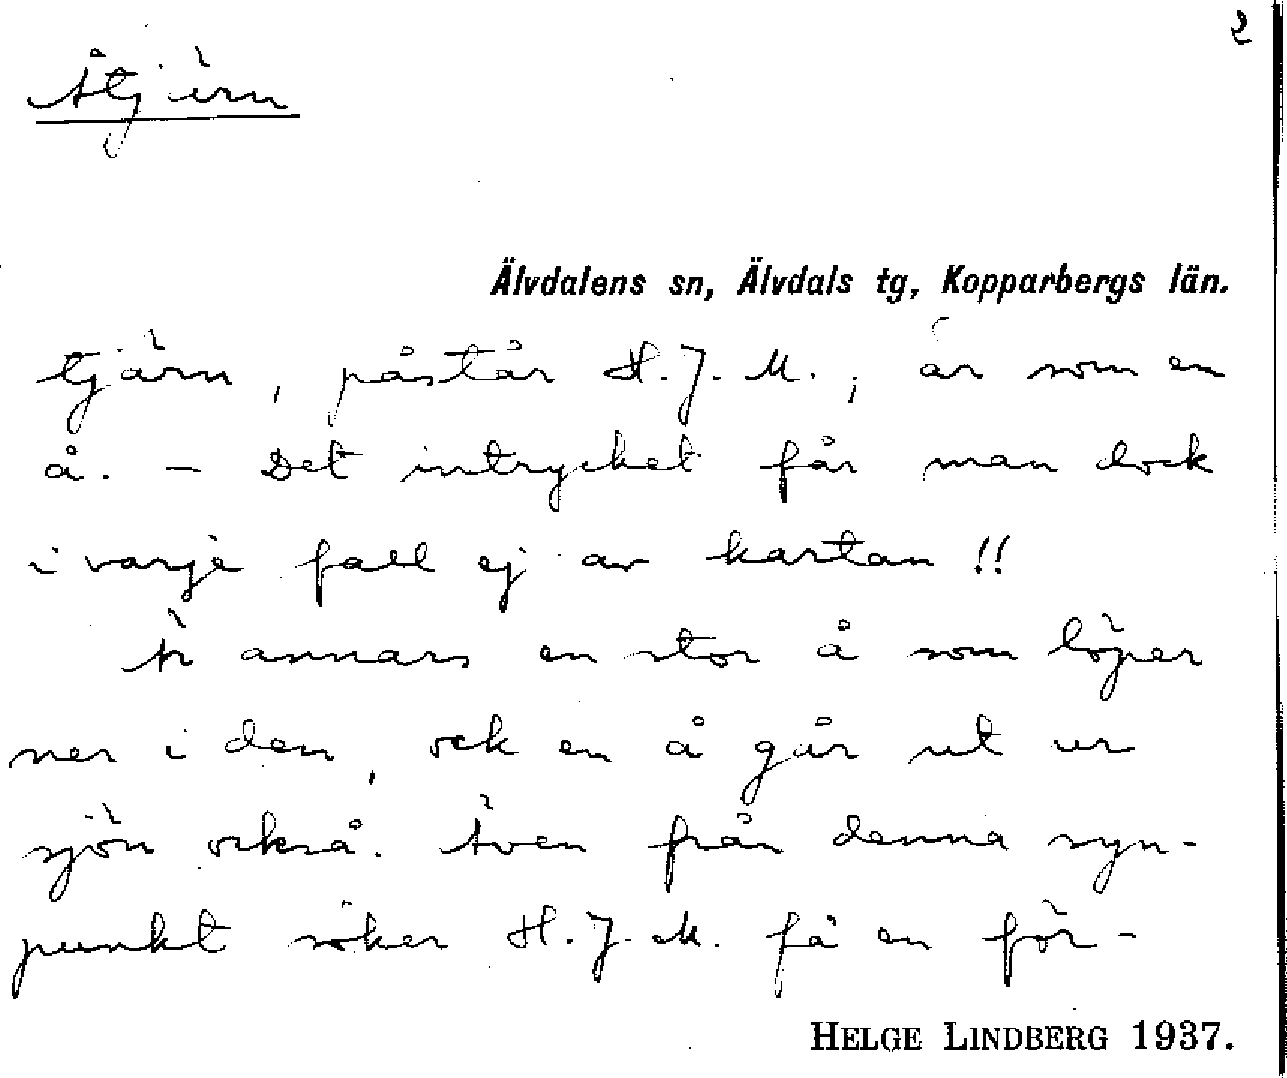 2
Åtjärn
Älvdalens sn, Älvdals tg, Kopparbergs län.
tjärn, påstår H. J. M., är som en
å. - Det intrycket får man dock
i varje fall ej av kartan!!
Är annars en stor å som löper
ner i den, ock en å går ut ur
sjön också. Även från denna syn-
punkt söker H. J. M. få en för-
HELGE LINDBERG 1937.